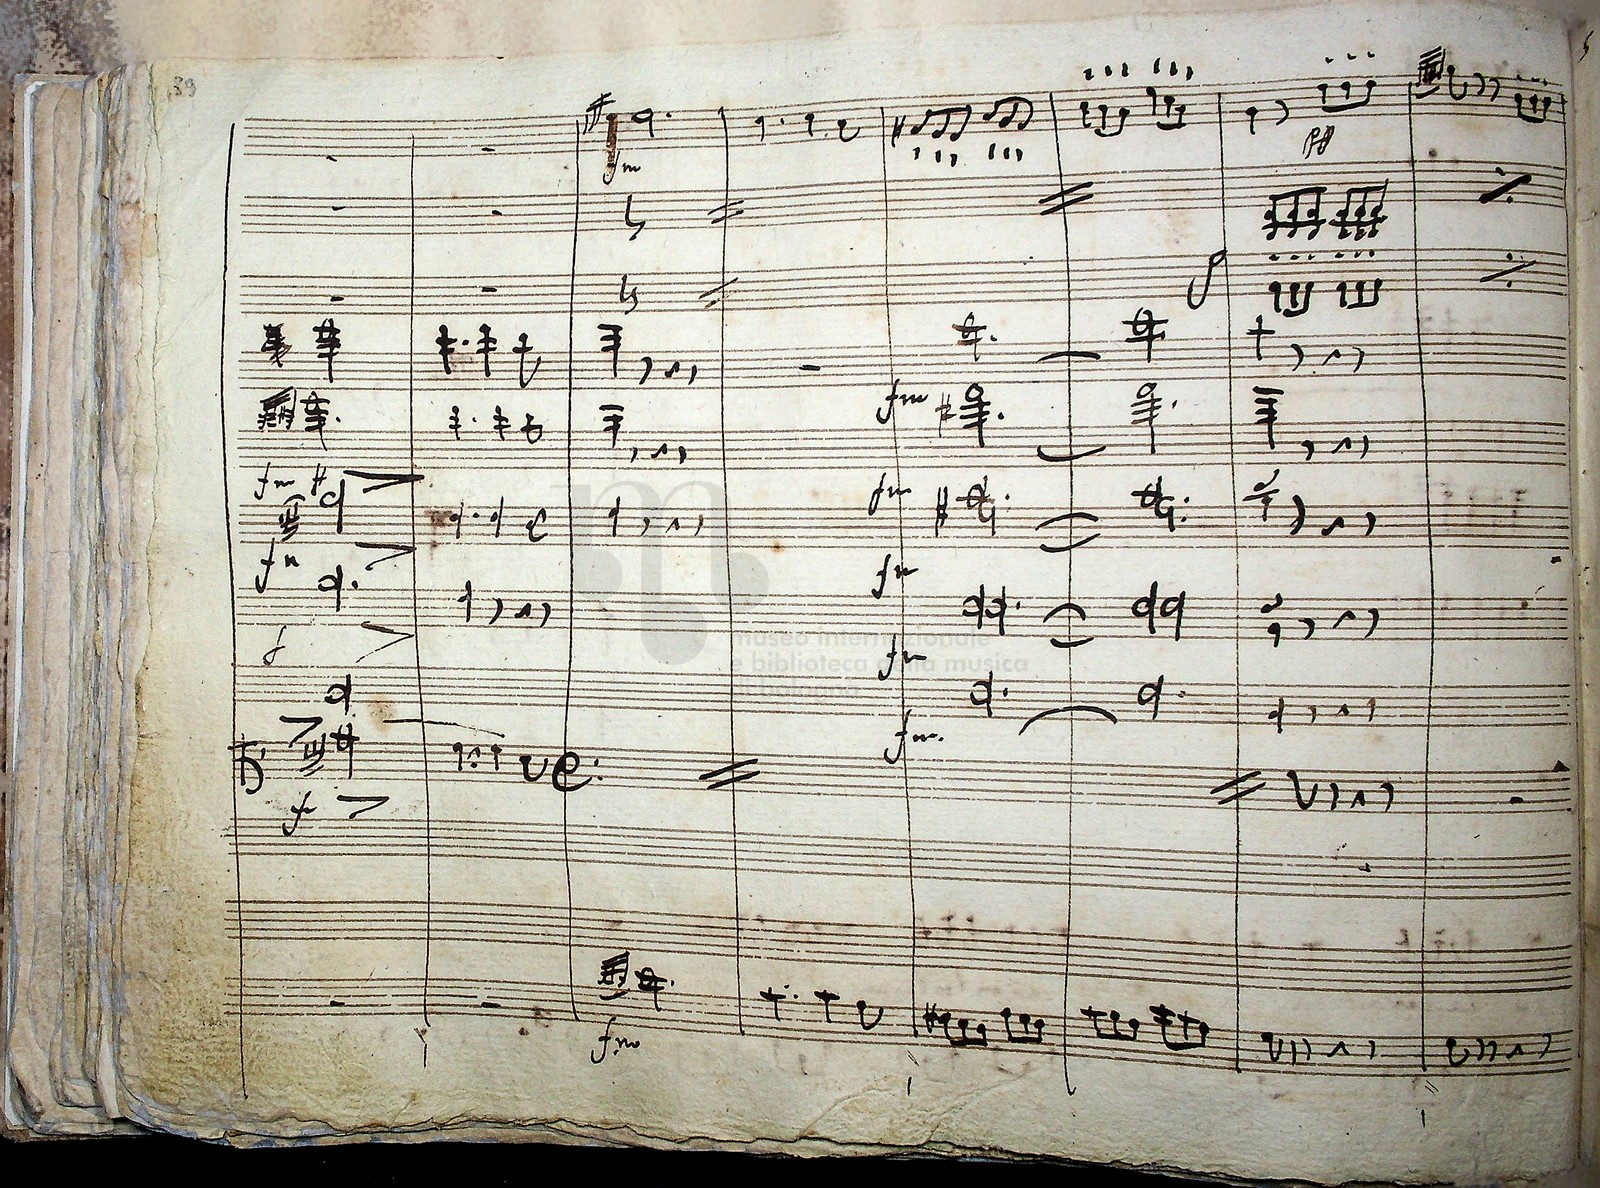 89
fm
pp
fm
fm
fm
fm
fm
f
fm
fm.
f
museo internazionale
e biblioteca della musica
di bologna
fmo